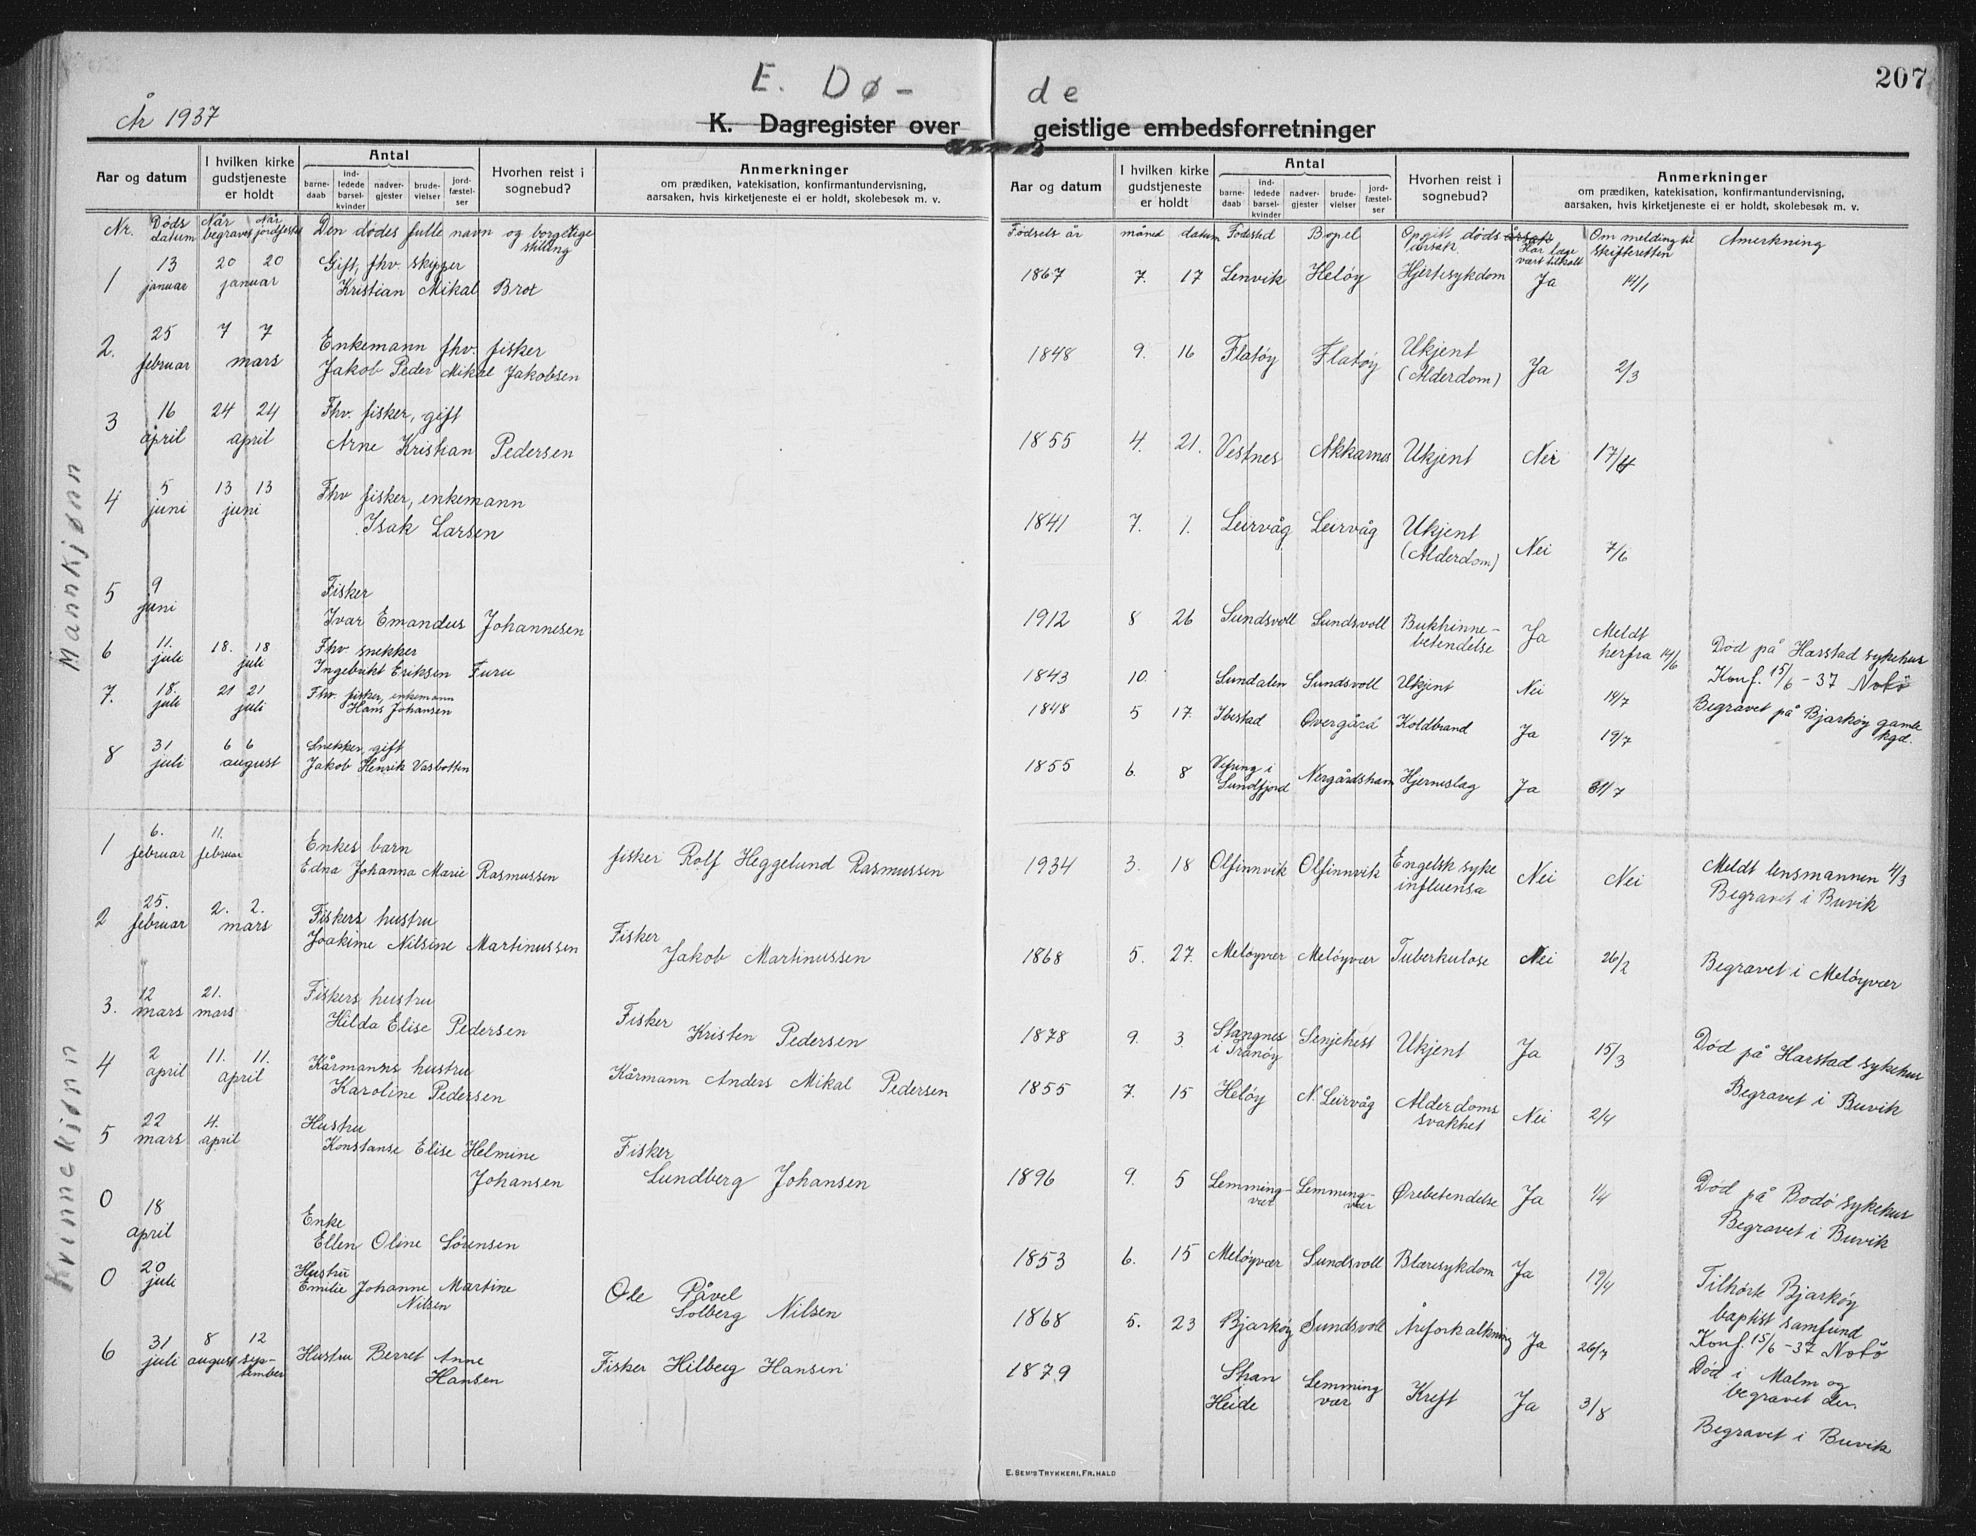 E. Dø- de
207
År 1937
K. Dagregister over geistlige embedsforretninger
Aar og datum
I hvilken kirke gudstjeneste er holdt
Antal
barne-daab
ind-ledede barsel-kvinder
nadver-gjester
brude-vielser
jord-fæstel-ser
Hvorhen reist i sognebud?
Anmerkninger
om prædiken, katekisation, konfirmantundervisning,
aarsaken, hvis kirketjeneste ei er holdt, skolebesøk m. v.
Aar og datum
I hvilken kirke gudstjeneste er holdt
Antal
barne-daab
ind-ledede barsel-kvinder
nadver-gjester
brude-vielser
jord-fæstel-ser
Hvorhen reist i sognebud?
Anmerkninger
om prædiken, katekisation, konfirmantundervisning,
aarsaken, hvis kirketjeneste ei er holdt, skolebesøk m. v.
Nr. Døds datum Når begravet Når jordfestet Den dødes fulle navn og borgerlige stilling
Fødsels år måned datum Fødested Bopel Opgitt dødsårsak Har læge vært tilkalt Om melding til skifteretten Anmerkning
Mannkjønn
1 13 januar 20 20 januar Gift, fhv. skipper
Kristian Mikal Brox
1867 7. 17 Lenvik Heløy Hjertesykdom Ja 14/1
2. 25 februar 7 7 mars Enkemann fhv. fisker
Jakob Peder Mikal Jakobsen
1848 9. 16 Flatøy Flatøy Ukjent (Alderdom) Ja 2/3
3 16 april 24 24 april Fhv. fisker, gift
Arne Kristian Pedersen
1855 4. 21. Vestnes Akkarnes Ukjent Nei 17/4
4 5 juni 13 13 juni Fhv fisker, enkemann
Isak Larsen
1841 7. 1. Leirvåg Leirvåg Ukjent (Alderdom) Nei 7/6
5 9 juni Fisker
Ivar Emandus Johannesen
1912 8 26 Sundsvoll Sundsvoll Bukhinne-betendelse Ja Meldt herfra 14/6 Død på Harstad sykehus
Konf. 15/6-37 Notø
6 11. juli 18. 18 juli Fhv. snekker
Ingebrikt Eriksen Furu
1843 10. Sundalen Sundsvoll Ukjent Nei 14/7
7. 18. juli 21 21 juli Fhv. fisker, enkemann
Hans Johansen
1848 5 17. Ibestad Øvergård Koldbrand Ja 19/7 Begravet på Bjarkøy gamle kgd.
8 31 juli 6 6 august Snekker, gift
Jakob Henrik Vasbotten
1855 6. 8 Sundfjord Nergårdshamn Hjerneslag Ja 31/7
Kvinnekjønn
1 6. februar 11. februar Enkes barn
Edna Johanna Marie Rasmussen fisker Rolf Heggelund Rasmussen
1934 3. 18 Olfinnvik Olfinnvik Engelsk syke influensa Nei Nei Meldt lensmannen 4/3
Begravet i Buvik
2 25. februar 2. 2. mars Fiskers hustru
Joakime Nilsine Martinussen Fisker Jakob Martinussen
1868 5. 27. Meløyvær Meløyvær Tuberkulose Nei 26/2 Begravet i Meløyvær
3. 12 mars 21. mars Fiskers hustru
Hilda Elise Pedersen Fisker Kristen Pedersen
1878 9. 3. Stangnes i Tranøy Senjehest Ukjent Ja 15/3 Død på Harstad sykehus
4 2 april 11. 11. april Kårmanns hustru
Karoline Pedersen Kårmann Anders Mikal Pedersen
1855 7. 15 Heløy N. Leirvåg Alderdoms svakhet Nei 2/4 Begravet i Buvik
5 22 mars 4. april Hustru
Konstanse Elise Helmine Johansen Fisker Lundberg Johansen
1896 9. 5 Lemmingvær Lemmingvær Ørebetendelse Ja 1/4 Død på Bodø sykehus
Begravet i Buvik
0 18 april Enke
Ellen Oline Sørensen
1853 6. 15 Meløyvær Sundsvoll Blæresykdom Ja 19/4 Tilhørte Bjarkøy baptist samfund
Konf. 15/6-37 Notø
0 20 juli Hustru
Emilie Johanne Martine Nilsen Ole Påvel Solberg Nilsen
1868 5. 23 Bjarkøy Sundsvoll Åreforkalkning Ja 26/7 Død i Malm og begravet der.
6 31 juli 8 august 12 september Hustru Berret Anne Hansen Fisker Hilberg Hansen
1879 Heide Lemmingvær Kreft Ja 3/8 Begravet i Buvik
E. SEM'S TRYKKERI, FR. HALD